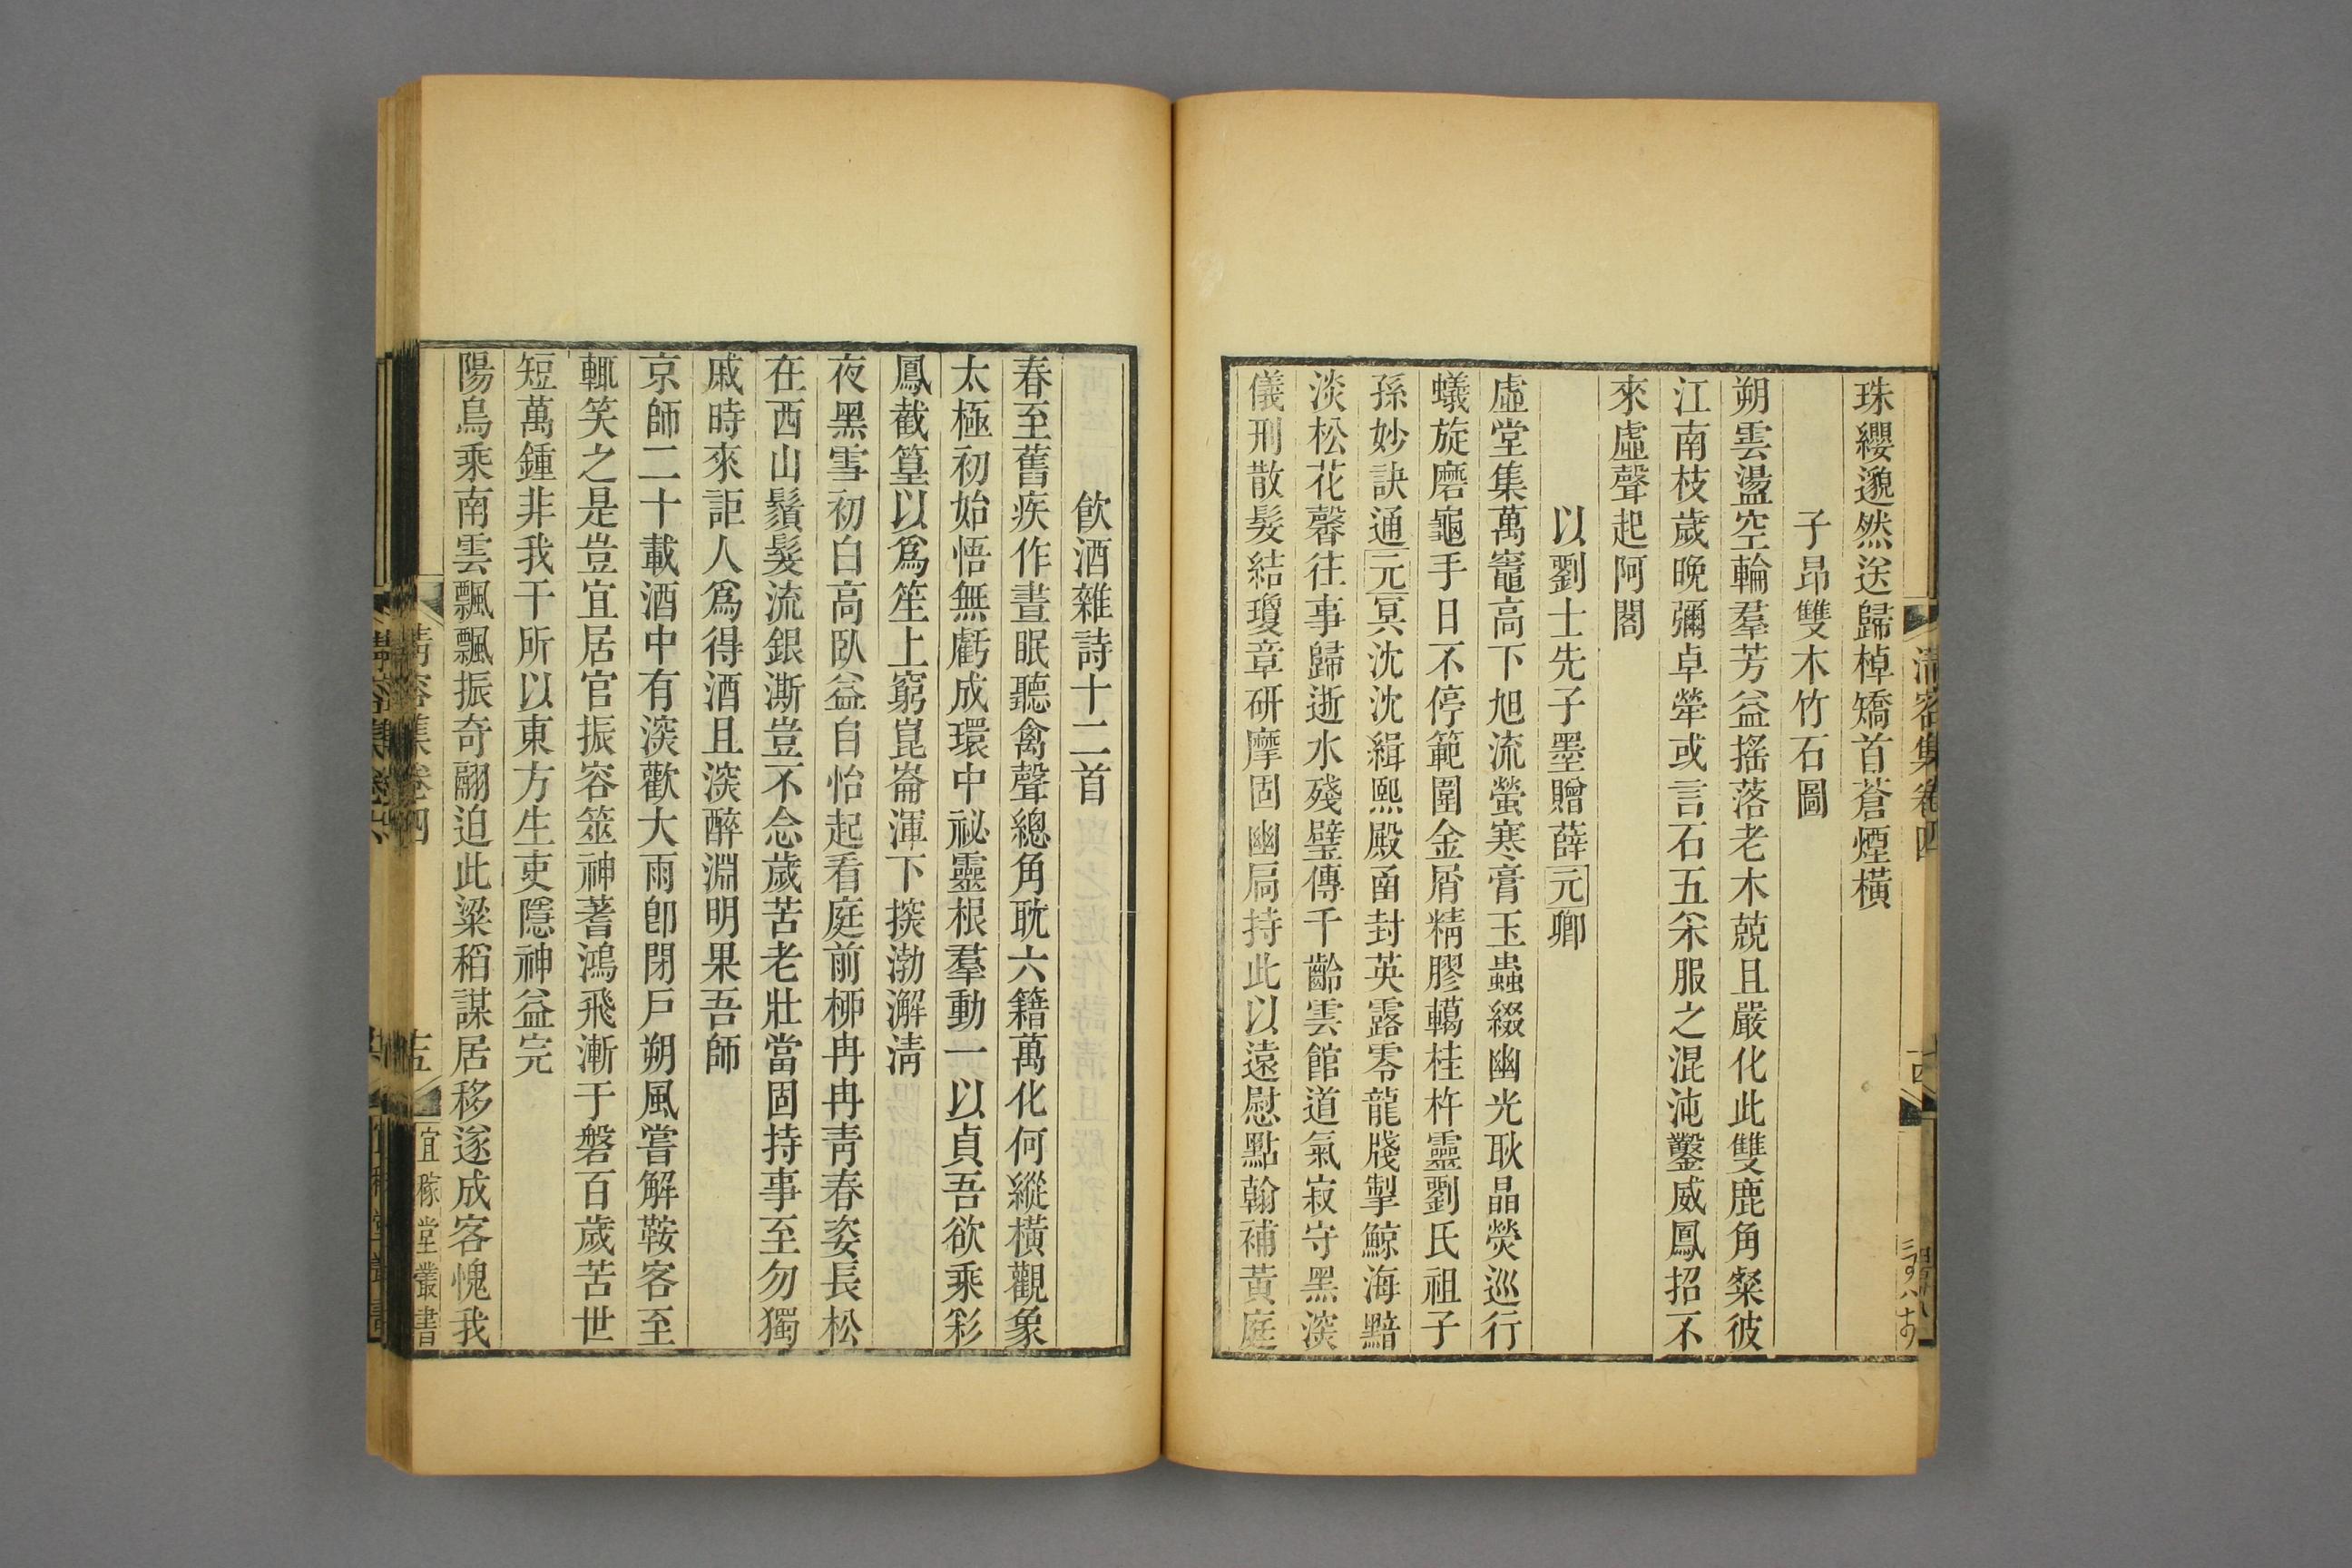 珠纓邈然送歸棹矯首蒼煙橫
子昂雙木竹石圖
朔雲盪空輪羣芳益搖落老木兢且嚴化此雙鹿角粲彼
江南枝歲晚彌卓犖或言石五采服之混沌鑿威鳳招不
來虛聲起阿閣
以劉士先子墨贈薛元卿
虛堂集萬竈高下旭流螢寒膏玉蟲綴幽光耿晶熒巡行
蟻旋磨龜手日不停範圍金屑精膠轕桂杵靈劉氏祖子
孫妙訣通元冥沈沈緝熙殿函封英露零龍牋掣鯨海黯
淡松花馨往事歸逝水殘璧傳千齡雲館道氣寂守黑深
儀刑散髮結瓊章研摩固幽扃持此以遠慰點翰補黃庭
飲酒雜詩十二首
春至舊疾作晝眠聽禽聲總角耽六籍萬化何縱橫觀象
太極初始悟無虧成環中祕靈根羣動一以貞吾欲乘彩
鳳截篁以爲笙上窮崑崙渾下探渤澥淸
夜黑雪初白高臥益自怡起看庭前柳冉冉靑春姿長松
在西山鬚髮流銀澌豈不念歲苦老壯當固持事至勿獨
戚時來詎人爲得酒且深醉淵明果吾師
京師二十載酒中有深歡大雨卽閉戸朔風嘗解鞍客至
輒笑之是豈宜居官振容筮神蓍鴻飛漸于磐百歲苦世
短萬鍾非我干所以東方生吏隱神益完
陽鳥乘南雲飄飄振奇翮迫此粱稻謀居移遂成客愧我
淸容集卷四
宜稼堂叢書